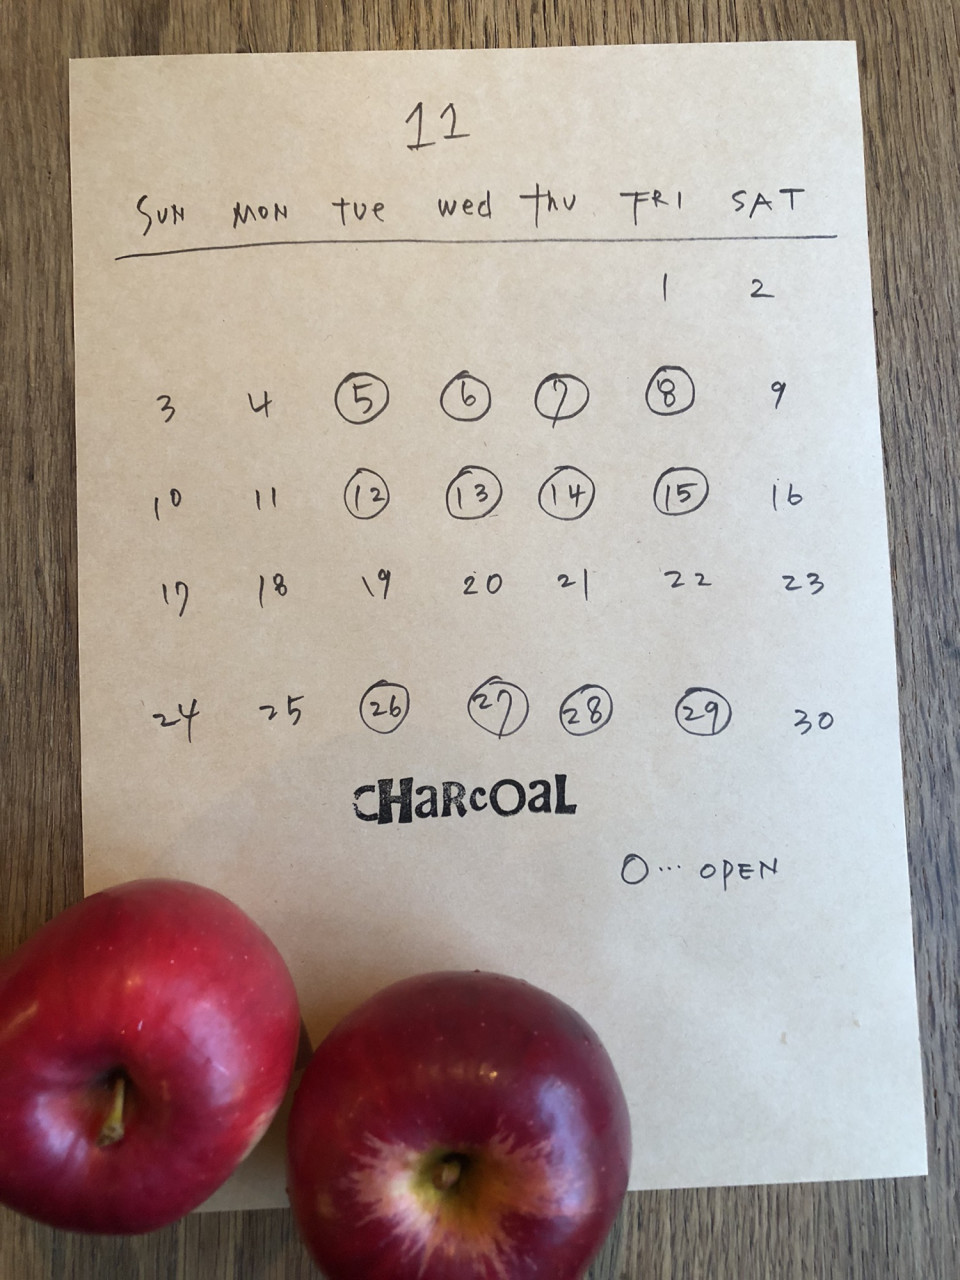 11
SUN MON tue wed thu FRI SAT
1 2
3 4 5 6 7 8 9
10 11 12 13 14 15 16
17 18 19 20 21 22 23
24 25 26 27 28 29 30
CHaRcOaL
O... OPEN